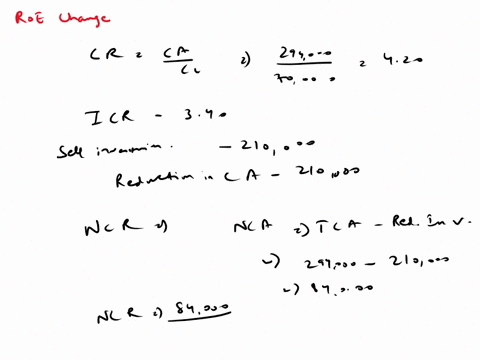 RoE Change
CR = CA/CL => 294,000/70,000 = 4.20
ICR - 3.40
Sell - 210,000
Reduction in CA - 210,000
NCR => NCA => TCA - Red. Inv.
=> 294,000 - 210,000
=> 84,000
NCR => 84,000